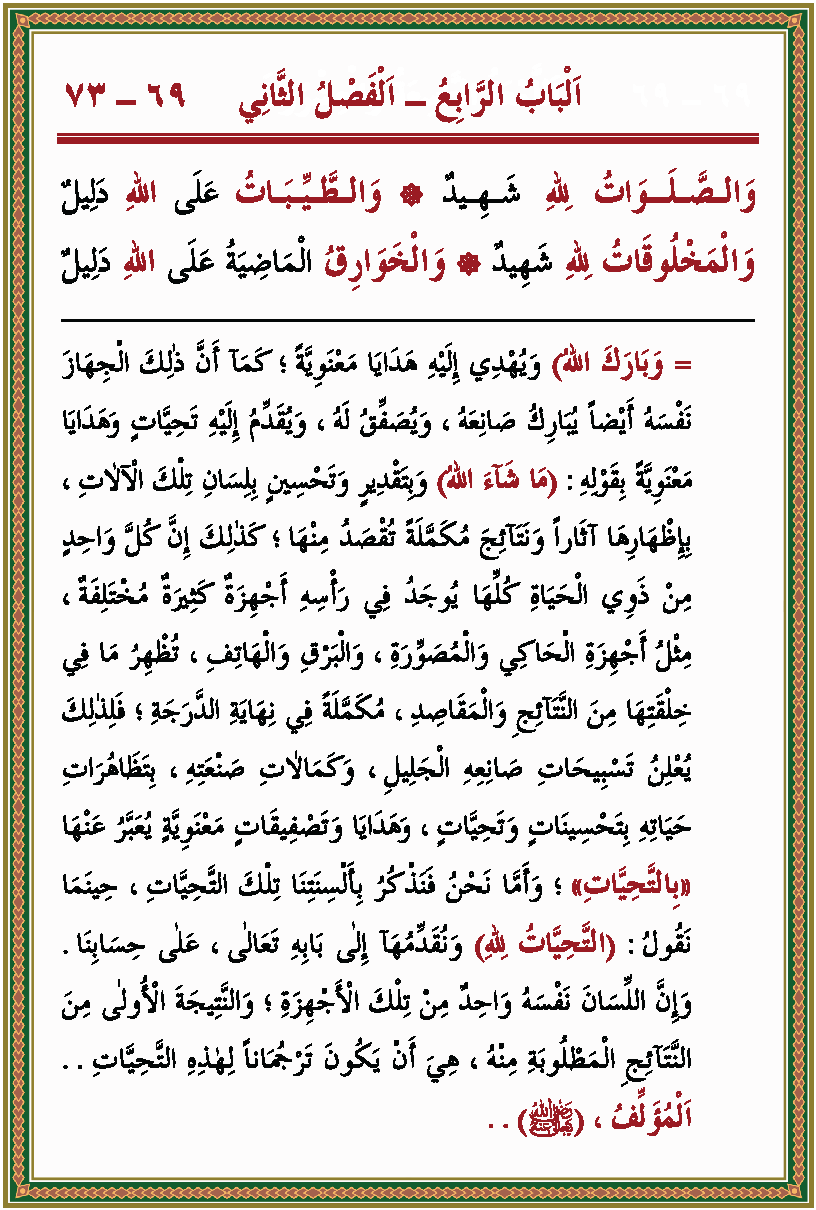 اَلْبَابُ الرَّابِعُ ــ اَلْفَصْلُ الثَّانِي ٦٩ ــ ٧٣
وَالصَّلَوَاتُ لِلّٰهِ شَهِيدٌ ❁ وَالطَّيِّبَاتُ عَلَى اللّٰهِ دَلِيلٌ
وَالْمَخْلُوقَاتُ لِلّٰهِ شَهِيدٌ ❁ وَالْخَوَارِقُ الْمَاضِيَةُ عَلَى اللّٰهِ دَلِيلٌ
= وَبَارَكَ اللّٰهُ) وَيُهْدِي إِلَيْهِ هَدَايَا مَعْنَوِيَّةً ؛ كَمَآ أَنَّ ذٰلِكَ الْجِهَازَ
نَفْسَهُ أَيْضاً يُبَارِكُ صَانِعَهُ ، وَيُصَفِّقُ لَهُ ، وَيُقَدِّمُ إِلَيْهِ تَحِيَّاتٍ وَهَدَايَا
مَعْنَوِيَّةً بِقَوْلِهِ : (مَا شَآءَ اللّٰهُ) وَبِتَقْدِيرٍ وَتَحْسِينٍ بِلِسَانِ تِلْكَ الْاٰلَاتِ ،
بِإِظْهَارِهَا آثَاراً وَنَتَآئِجَ مُكَمَّلَةً تُقْصَدُ مِنْهَا ؛ كَذٰلِكَ إِنَّ كُلَّ وَاحِدٍ
مِنْ ذَوِي الْحَيَاةِ كُلِّهَا يُوجَدُ فِي رَأْسِهِ أَجْهِزَةٌ كَثِيرَةٌ مُخْتَلِفَةٌ ،
مِثْلُ أَجْهِزَةِ الْحَاكِي وَالْمُصَوِّرَةِ ، وَالْبَرْقِ وَالْهَاتِفِ ، تُظْهِرُ مَا فِي
خِلْقَتِهَا مِنَ النَّتَآئِجِ وَالْمَقَاصِدِ ، مُكَمَّلَةً فِي نِهَايَةِ الدَّرَجَةِ ؛ فَلِذٰلِكَ
يُعْلِنُ تَسْبِيحَاتِ صَانِعِهِ الْجَلِيلِ ، وَكَمَالَاتِ صَنْعَتِهِ ، بِتَظَاهُرَاتِ
حَيَاتِهِ بِتَحْسِينَاتٍ وَتَحِيَّاتٍ ، وَهَدَايَا وَتَصْفِيقَاتٍ مَعْنَوِيَّةٍ يُعَبَّرُ عَنْهَا
«بِالتَّحِيَّاتِ» ؛ وَأَمَّا نَحْنُ فَنَذْكُرُ بِأَلْسِنَتِنَا تِلْكَ التَّحِيَّاتِ ، حِينَمَا
نَقُولُ : (التَّحِيَّاتُ لِلّٰهِ) وَنُقَدِّمُهَآ إِلٰى بَابِهِ تَعَالٰى ، عَلٰى حِسَابِنَا .
وَإِنَّ اللِّسَانَ نَفْسَهُ وَاحِدٌ مِنْ تِلْكَ الْأَجْهِزَةِ ؛ وَالنَّتِيجَةَ الْأُولٰى مِنَ
النَّتَآئِجِ الْمَطْلُوبَةِ مِنْهُ ، هِيَ أَنْ يَكُونَ تَرْجُمَاناً لِهٰذِهِ التَّحِيَّاتِ . .
اَلْمُؤَلِّفُ ، (ﷺ) . .